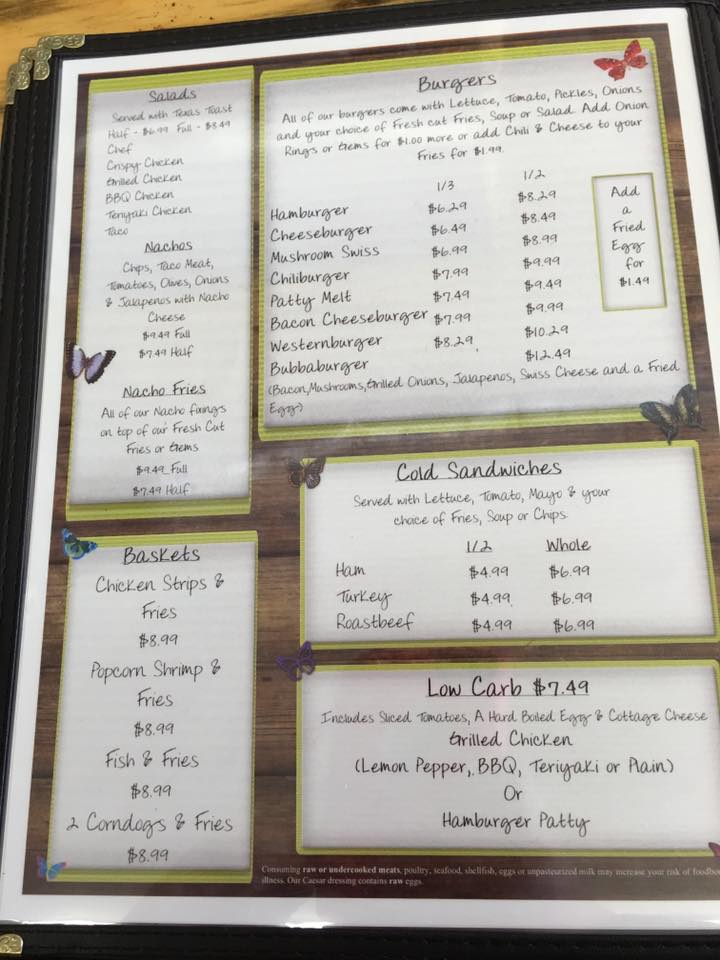 Salads
Served with Texas Toast
Half - $6.99 Full - $8.49
Chef
Crispy Chicken
Grilled Chicken
BBQ Chicken
Teriyaki Chicken
Taco
Nachos
Chips, Taco Meat,
Tomatoes, Olives, Onions
& Jalapenos with Nacho
Cheese
$9.49 Full
$7.49 Half
Nacho Fries
All of our Nacho fixings
on top of our Fresh Cut
Fries or Gems
$9.49 Full
$7.49 Half
Baskets
Chicken Strips &
Fries
$8.99
Popcorn Shrimp &
Fries
$8.99
Fish & Fries
$8.99
2 Corndogs & Fries
$8.99
Burgers
All of our burgers come with Lettuce, Tomato, Pickles, Onions
and your choice of Fresh cut Fries, Soup or Salad. Add Onion
Rings or Gems for $1.00 more or add Chili & Cheese to your
Fries for $1.99.
1/3 1/2
Hamburger $6.29 $8.29
Cheeseburger $6.49 $8.49
Mushroom Swiss $6.99 $8.99
Chiliburger $7.99 $9.99
Patty Melt $7.49 $9.49
Bacon Cheeseburger $7.99 $9.99
Westernburger $8.29 $10.29
Bubbaburger $12.49
(Bacon,Mushrooms,Grilled Onions, Jalapenos, Swiss Cheese and a Fried
Egg)
Add
a
Fried
Egg
for
$1.49
Cold Sandwiches
Served with Lettuce, Tomato, Mayo & your
choice of Fries, Soup or Chips
1/2 Whole
Ham $4.99 $6.99
Turkey $4.99 $6.99
Roastbeef $4.99 $6.99
Low Carb $7.49
Includes Sliced Tomatoes, A Hard Boiled Egg & Cottage Cheese
Grilled Chicken
(Lemon Pepper, BBQ, Teriyaki or Plain)
Or
Hamburger Patty
Consuming raw or undercooked meats, poultry, seafood, shellfish, eggs or unpasteurized milk may increase your risk of foodbo
illness. Our Caesar dressing contains raw eggs.